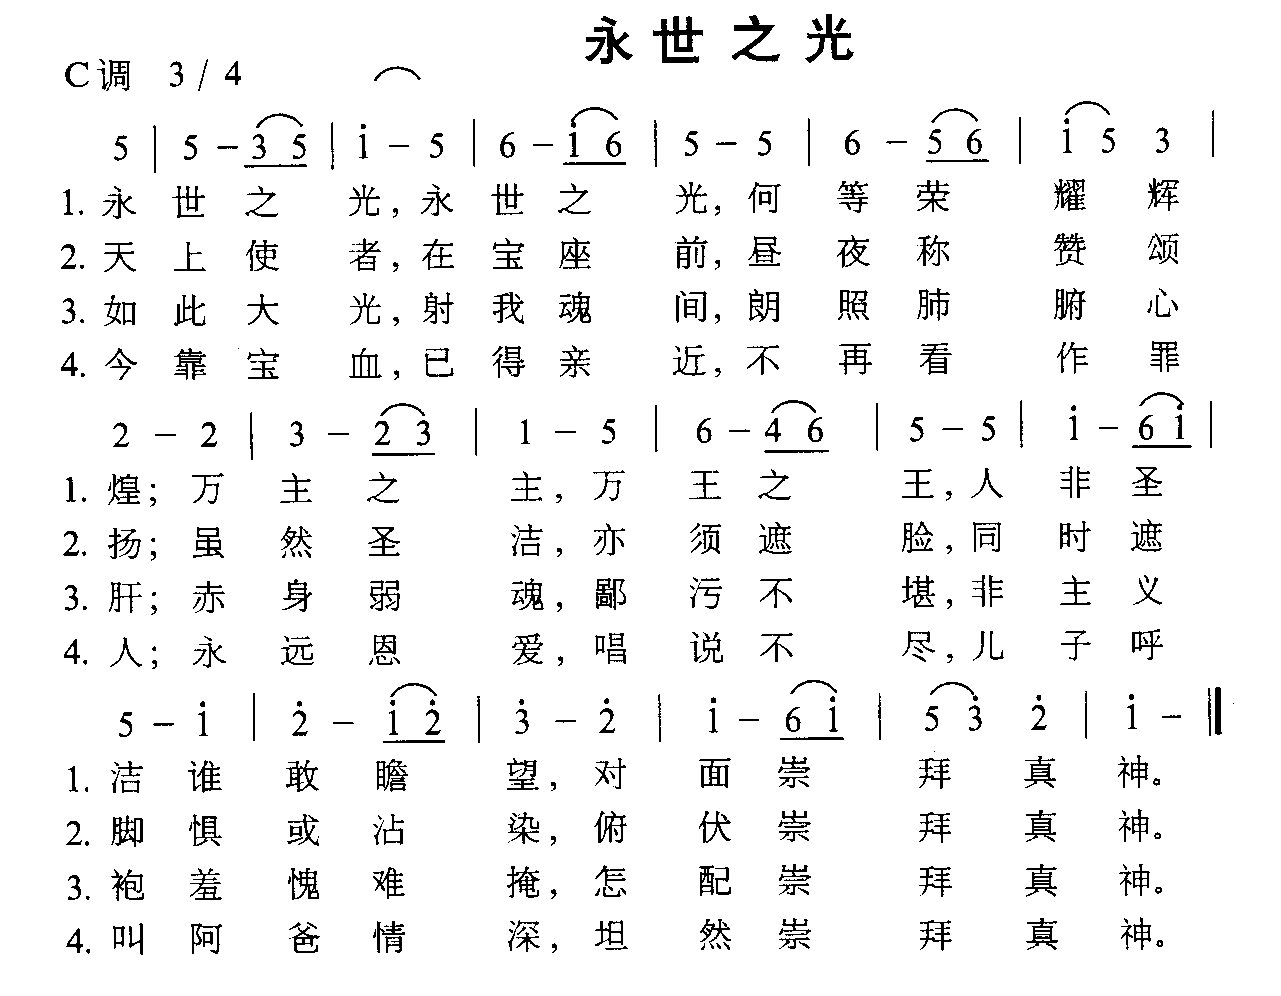 永世之光
C调 3/4
5 | 5 - 3 5 | i - 5 | 6 - i 6 | 5 - 5 | 6 - 5 6 | i 5 3 |
1. 永世之光,永世之光,何等荣耀辉
2. 天上使者,在宝座前,昼夜称赞颂
3. 如此大光,射我魂间,朗照肺腑心
4. 今靠宝血,已得亲近,不再看作罪
2 - 2 | 3 - 2 3 | 1 - 5 | 6 - 4 6 | 5 - 5 | i - 6 i |
1. 煌;万主之主,万王之王,人非圣
2. 扬;虽然圣洁,亦须遮脸,同时遮
3. 肝;赤身弱魂,鄙污不堪,非主义
4. 人;永远恩爱,唱说不尽,儿子呼
5 - i | 2̇ - i 2̇ | 3̇ - 2̇ | i - 6 i | 5 3̇ 2̇ | i - ‖
1. 洁谁敢瞻望,对面崇拜真神。
2. 脚惧或沾染,俯伏崇拜真神。
3. 袍羞愧难掩,怎配崇拜真神。
4. 叫阿爸情深,坦然崇拜真神。